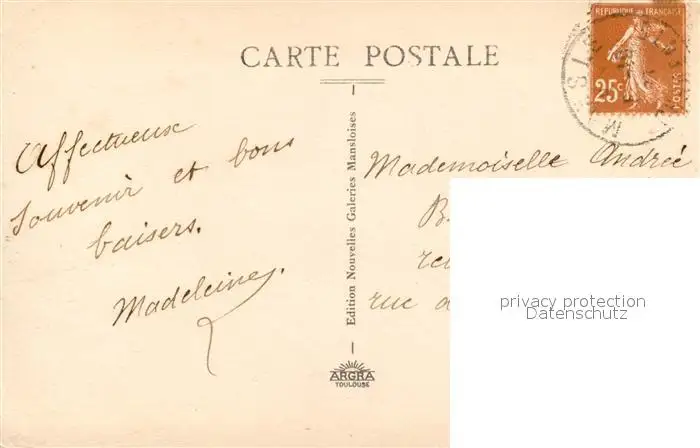 CARTE POSTALE
REPUBLIQUE FRANÇAISE
25c
POSTES
Affectueux
souvenir et bons
baisers.
Madeleine.
Edition Nouvelles Galeries Mansloises
ARGRA
TOULOUSE
Mademoiselle Andrée
B
rue
privacy protection
Datenschutz